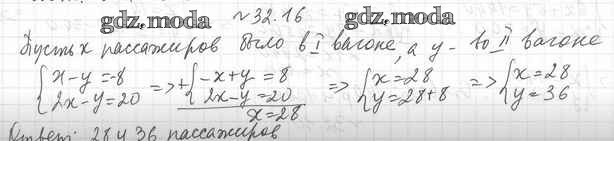 gdz.moda № 32.16 gdz.moda
Пусть x пассажиров было в I вагоне, а y - во II вагоне
{x-y=-8 => +{-x+y=8 => {x=28 => {x=28
{2x-y=20 {2x-y=20 {y=28+8 {y=36
x=28
Ответ: 28 и 36 пассажиров